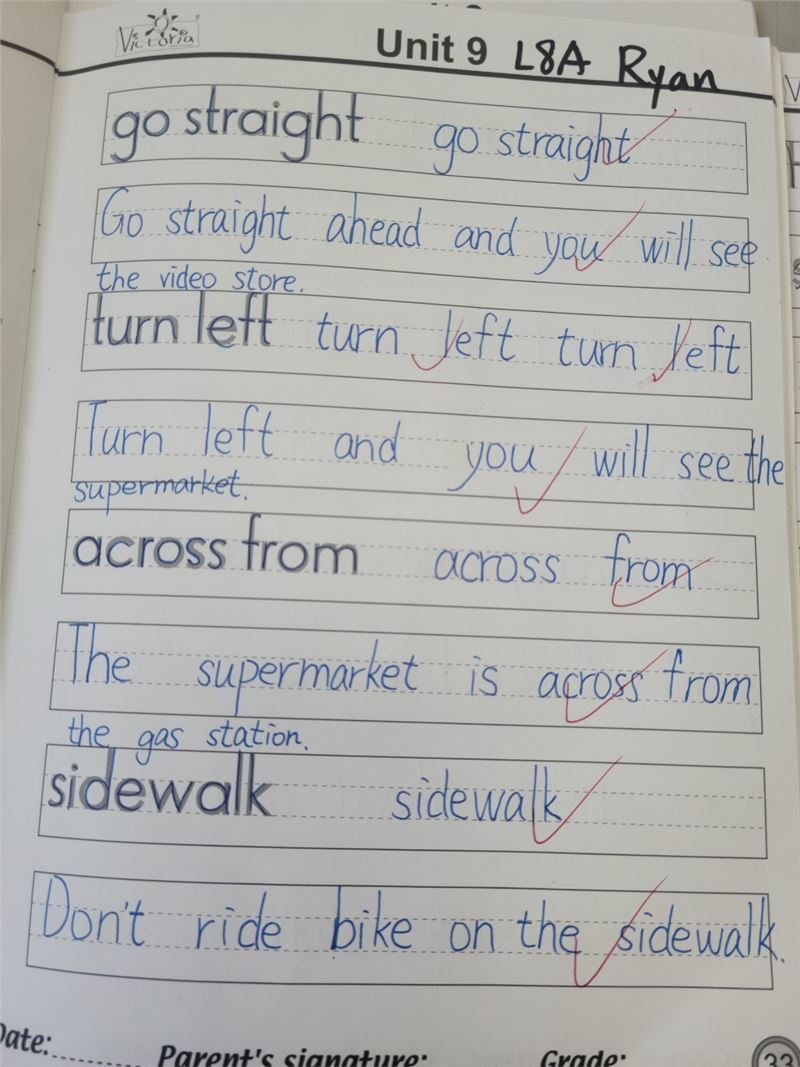 Victoria
Unit 9 L8A Ryan
go straight go straight
Go straight ahead and you will see
the video store.
turn left turn left turn left
Turn left and you will see the
supermarket.
across from across from
The supermarket is across from
the gas station.
sidewalk sidewalk
Don't ride bike on the sidewalk.
Date: Parent's signature: Grade: 33